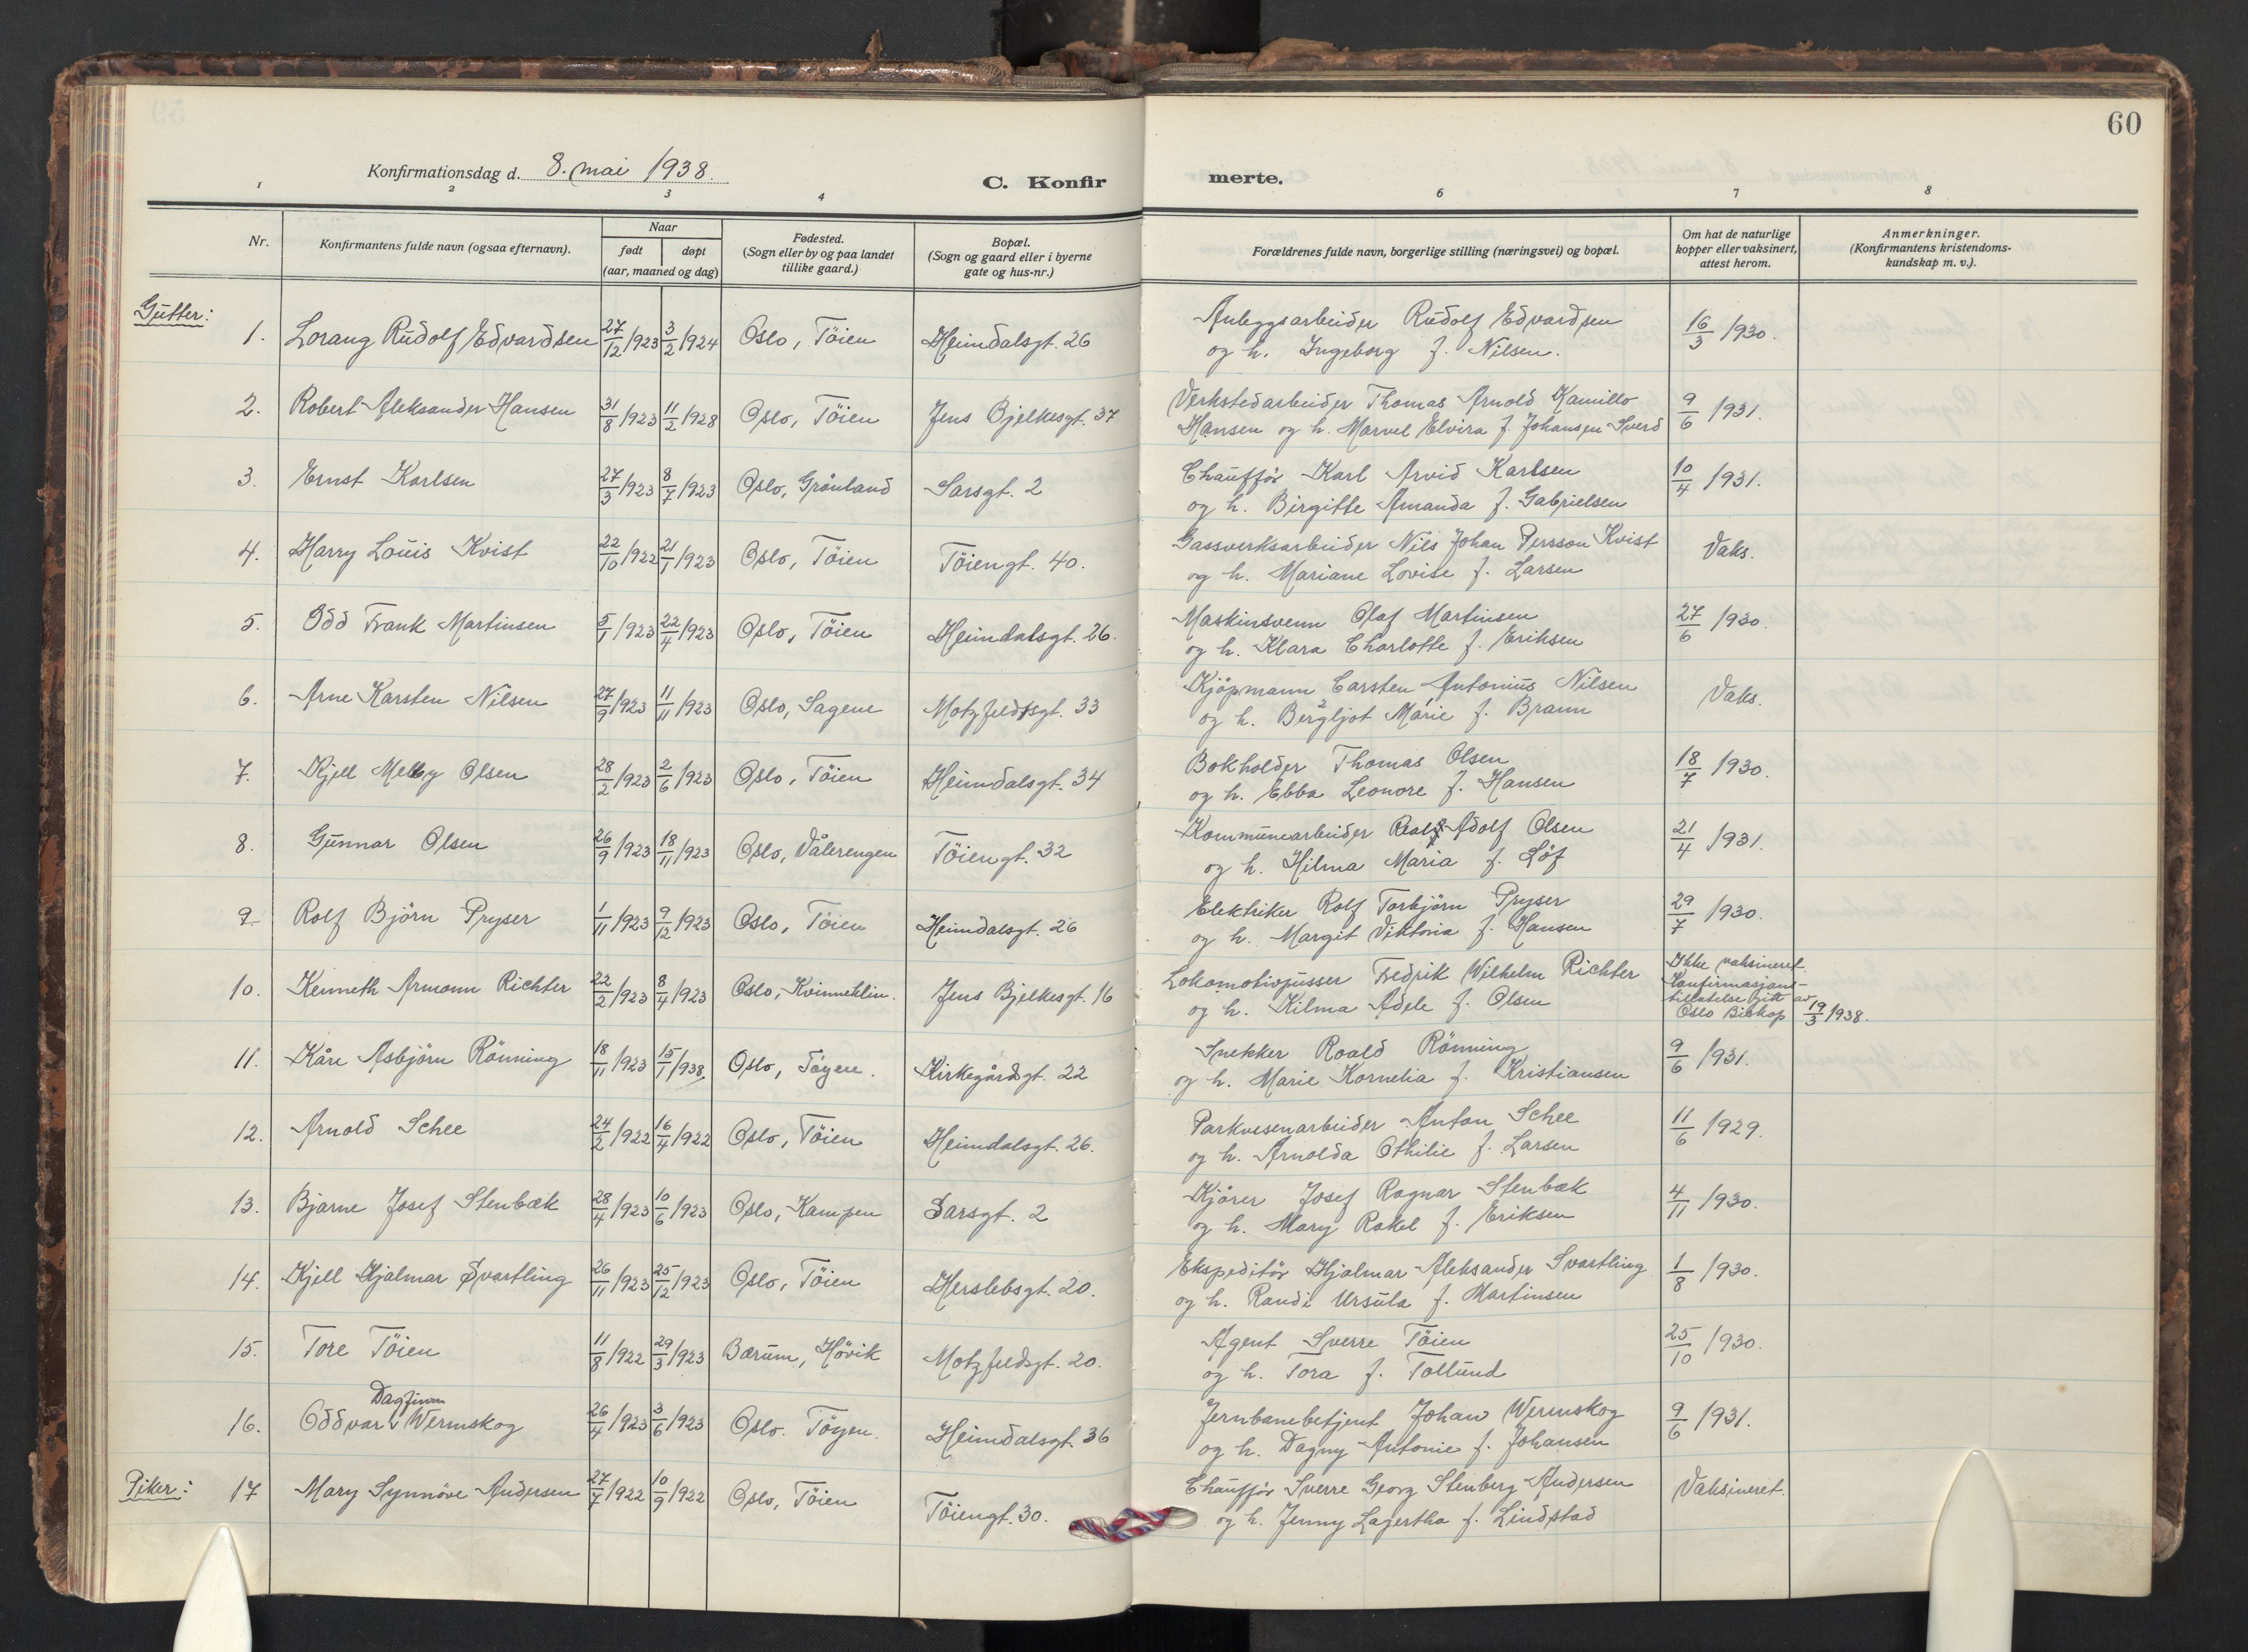 60
Konfirmationsdag d. 8. mai 1938.
C. Konfirmerte.
1 2 3 4 6 7 8
Nr.
Konfirmantens fulde navn (ogsaa efternavn).
Naar
født døpt
(aar, maaned og dag)
Fødested.
(Sogn eller by og paa landet
tillike gaard.)
Bopæl.
(Sogn og gaard eller i byerne
gate og hus-nr.)
Forældrenes fulde navn, borgerlige stilling (næringsvei) og bopæl.
Om hat de naturlige
kopper eller vaksinert,
attest herom.
Anmerkninger.
(Konfirmantens kristendoms-
kundskap m. v.).
Gutter:
1. Lorang Rudolf Edvardsen 27/12 1923 3/2 1924 Oslo, Töien Heimdalsgt. 26 Anleggsarbeider Rudolf Edvardsen 16/3 1930.
og h. Ingeborg f. Nilsen.
2. Robert Aleksander Hansen 31/8 1923 11/2 1928 Oslo, Töien Jens Bjelkesgt. 37 Verkstedarbeider Thomas Arnold Kamillo 9/6 1931.
Hansen og h. Marvel Elvira f. Johansen Sverd
3. Ernst Karlsen 27/3 1923 8/7 1923 Oslo, Grönland Sarsgt. 2 Chaufför Karl Arvid Karlsen 10/4 1931.
og h. Birgitte Amanda f. Gabrielsen
4. Harry Louis Kvist 22/10 1922 21/1 1923 Oslo, Töien Töiengt. 40. Gassverksarbeider Nils Johan Persson Kvist Vaks.
og h. Mariane Lovise f. Larsen
5. Odd Frank Martinsen 5/1 1923 22/4 1923 Oslo, Töien Heimdalsgt. 26. Maskinsvenn Olaf Martinsen 27/6 1930.
og h. Klara Charlotte f. Eriksen
6. Arne Karsten Nilsen 27/9 1923 11/11 1923 Oslo, Sagene Motzfeldtsgt. 33 Kjöpmann Carsten Antonius Nilsen Vaks.
og h. Bergljot Marie f. Braun
7. Kjell Melby Olsen 28/2 1923 2/6 1923 Oslo, Töien Heimdalsgt. 34 Bokholder Thomas Olsen 18/7 1930.
og h. Ebba Leonore f. Hansen
8. Gunnar Olsen 26/9 1923 18/11 1923 Oslo, Vålerengen Töiengt. 32 Kommunearbeider Adolf Olsen 21/4 1931.
og h. Hilma Maria f. Löf
9. Rolf Björn Pryser 1/11 1923 9/12 1923 Oslo, Töien Heimdalsgt. 26 Elektriker Rolf Torbjörn Pryser 29/7 1930.
og h. Margit Viktoria f. Hansen
10. Kenneth Armann Richter 22/2 1923 8/4 1923 Oslo, Kvinneklin. Jens Bjelkesgt. 16 Lokomotivpusser Fredrik Wilhelm Richter Ikke vaksineret.
Konfirmasjons-
tillatelse gitt av
Oslo Biskop 19/3 1938.
og h. Hilma Adele f. Olsen
11. Kåre Asbjörn Rönning 18/11 1923 15/1 1938 Oslo, Töyen. Kirkegårdsgt. 22 Snekker Roald Rönning 9/6 1931.
og h. Marie Kornelia f. Kristiansen
12. Arnold Schee 24/2 1922 16/4 1922 Oslo, Töien Heimdalsgt. 26. Parkvesenarbeider Anton Schee 11/6 1929.
og h. Arnolda Othilie f. Larsen
13. Bjarne Josef Stenbæk 28/4 1923 10/6 1923 Oslo, Kampen Sarsgt. 2 Kjörer Josef Ragnar Stenbæk 4/11 1930.
og h. Mary Rakel f. Eriksen
14. Kjell Hjalmar Svartling 26/11 1923 25/12 1923 Oslo, Töien Herslebsgt. 20. Ekspeditör Hjalmar Aleksander Svartling 1/8 1930.
og h. Randi Ursula f. Martinsen
15. Tore Töien 11/8 1922 29/3 1923 Bærum, Hövik Motzfeldsgt. 20. Agent Sverre Töien 25/10 1930.
og h. Tora f. Tollund
16. Oddvar Dagfinn Wermskog 26/4 1923 3/6 1923 Oslo. Töyen. Heimdalsgt. 36 Jernbanebetjent Johan Wermskog 9/6 1931.
og h. Dagny Antonie f. Johansen
Piker: 17 Mary Synnöve Andersen 27/7 1922 10/9 1922 Oslo, Töien Töiengt. 30. Chaufför Sverre Georg Stenberg Andersen Vaksineret.
og h. Jenny Lagertha f. Lindstad